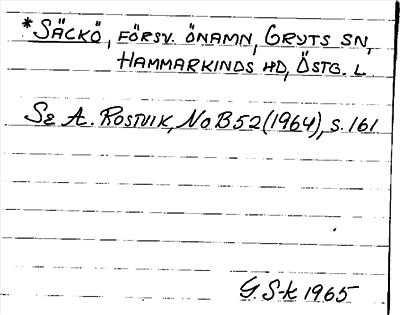 *SÄCKÖ, FÖRSV. ÖNAMN, GRYTS SN,
HAMMARKINDS HD, ÖSTG. L.
Se A. ROSTVIK, NoB 52 (1964), s. 161
G. S-k 1965